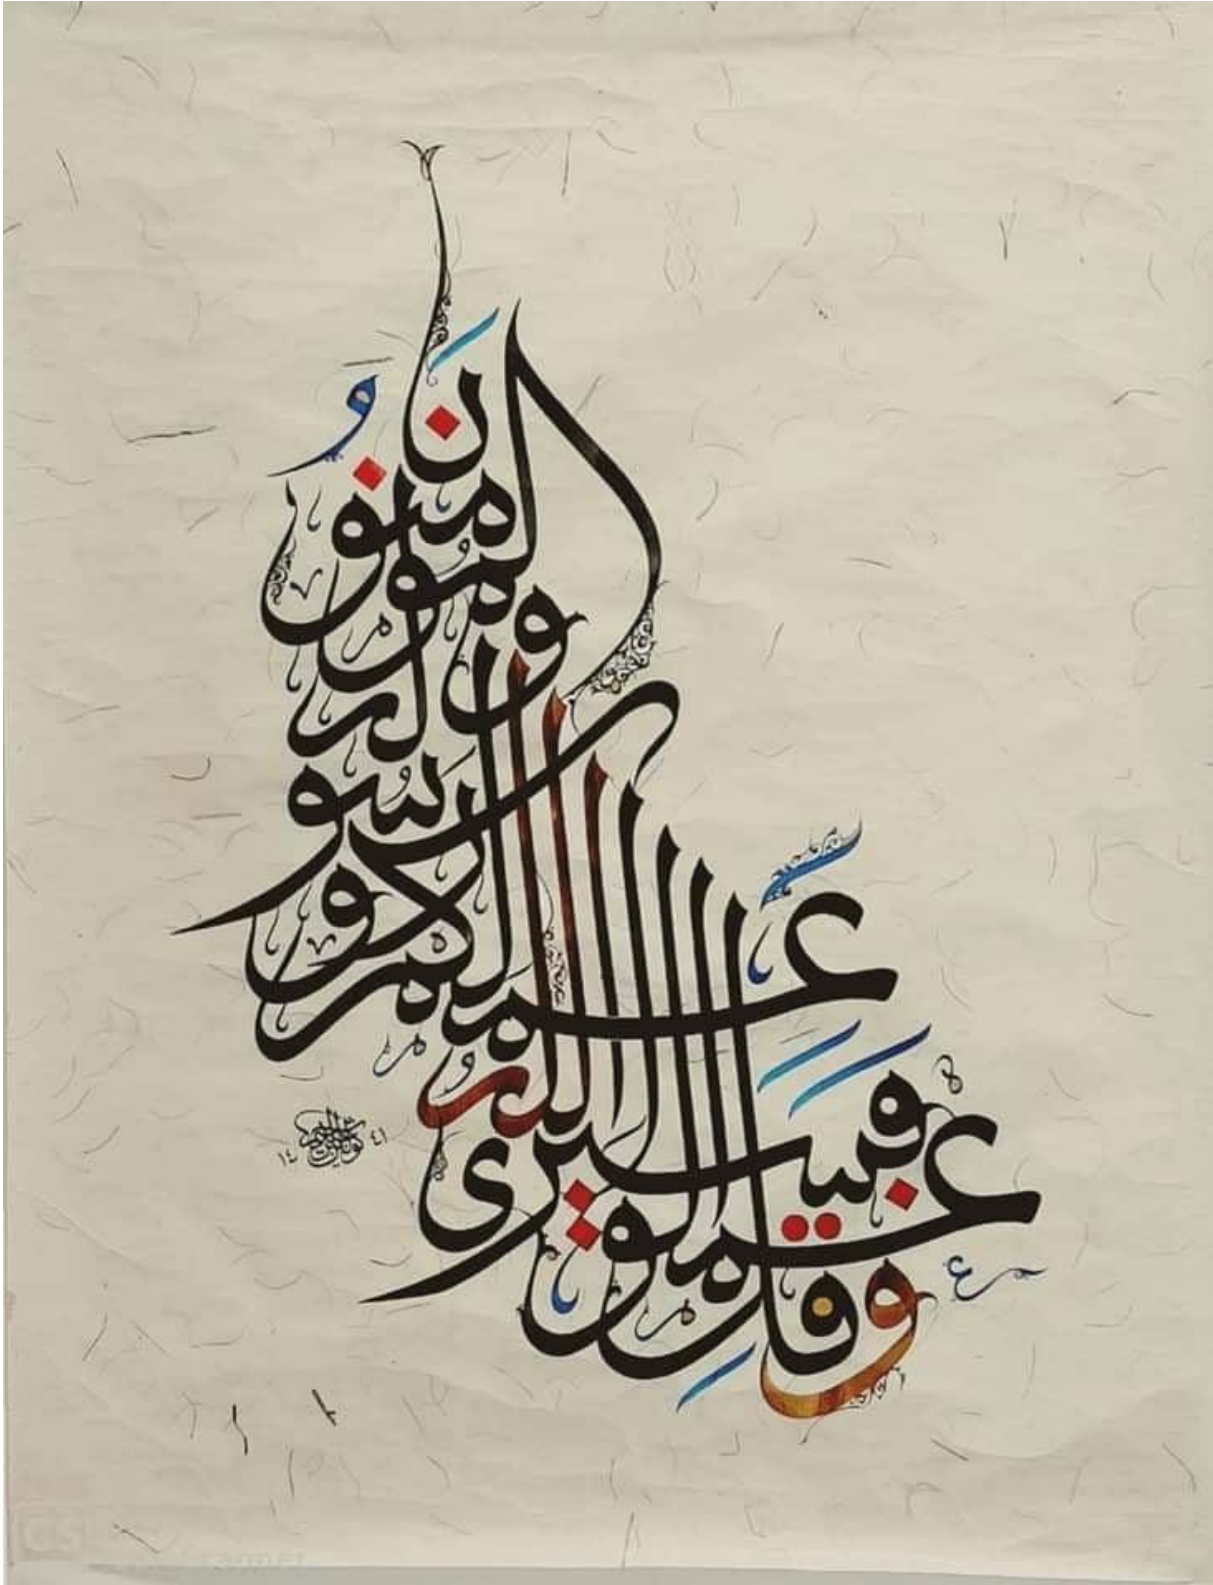 وقل اعملوا فسيرى الله عملكم ورسوله والمؤمنون
١٤٤١
CS